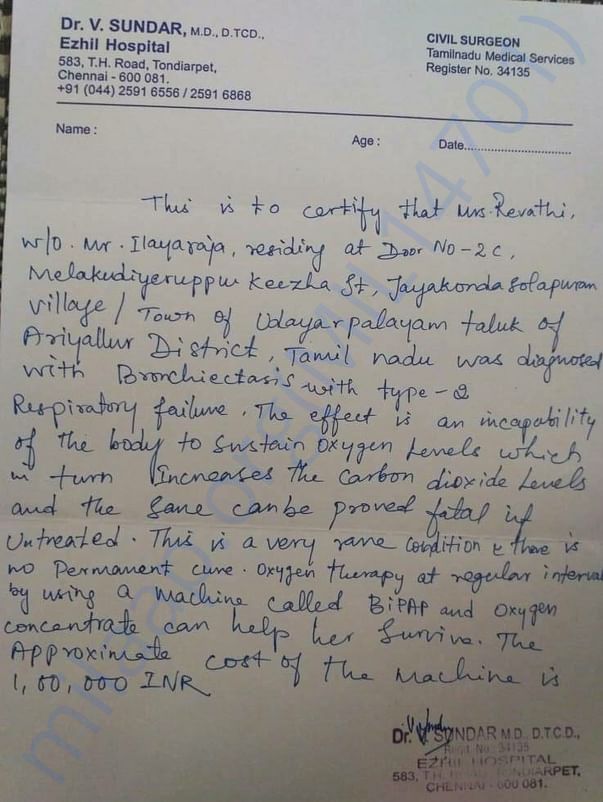 Dr. V. SUNDAR, M.D., D.TCD.,
Ezhil Hospital
583, T.H. Road, Tondiarpet,
Chennai - 600 081.
+91 (044) 2591 6556 / 2591 6868
CIVIL SURGEON
Tamilnadu Medical Services
Register No. 34135
Name :
Age :
Date..............................
This is to certify that Mrs. Revathi,
w/o. Mr. Ilayaraja, residing at Door No - 2c,
Melakudiyeruppu Keezha St, Jayakondasolapuram
village / Town of Udayarpalayam taluk of
Ariyallur District, Tamil nadu was diagnosed
with Bronchiectasis with type - 2
Respiratory failure. The effect is an incapability
of the body to sustain oxygen Levels which
in turn Increases the carbon dioxide Levels
and the same can be proved fatal if
Untreated. This is a very rare condition & there is
no Permanent cure. Oxygen therapy at regular interval
by using a machine called BiPAP and oxygen
concentrate can help her survive. The
Approximate cost of the machine is
1,00,000 INR
Dr. V. SUNDAR M.D., D.T.C.D.,
Regd. No: 34135
EZHIL HOSPITAL
583, T.H. ROAD, TONDIARPET,
CHENNAI - 600 081.